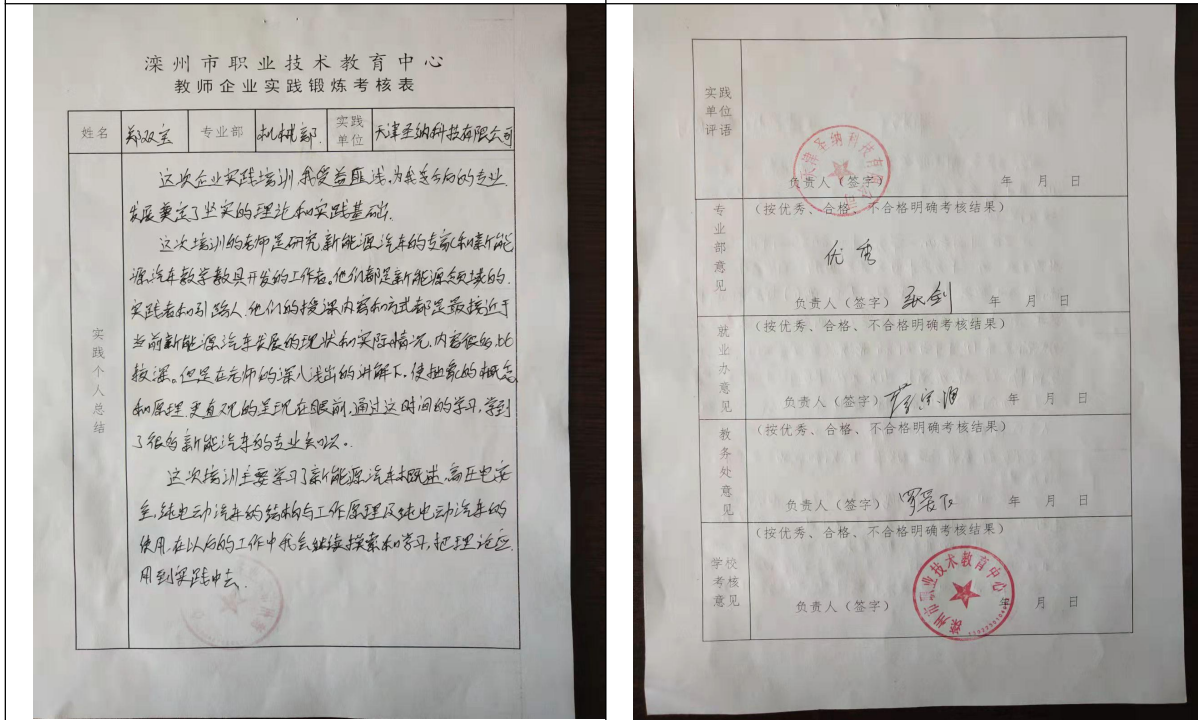 滦州市职业技术教育中心
教师企业实践锻炼考核表
姓名 郑双宝 专业部 机械部 实践单位 天津圣纳科技有限公司
实践个人总结
这次企业实践培训,我受益匪浅,为我今后的专业
发展奠定了坚实的理论和实践基础.
这次培训的老师是研究新能源汽车的专家和新能
源汽车教学教具开发的工作者。他们都是新能源领域的
实践者和引路人,他们的授课内容和方式都是最接近于
当前新能源汽车发展的现状和实际情况,内容很多比
较深。但是在老师的深入浅出的讲解下,使抽象的概念
和原理更直观的呈现在眼前,通过这时间的学习,学到
了很多新能汽车的专业知识。
这次培训主要学习了新能源汽车概述,高压电安
全,纯电动汽车的结构与工作原理及纯电动汽车的
使用,在以后的工作中我会继续探索和学习,把理论应
用到实践中去.
实践单位评语
天津圣纳科技有限公司
负责人(签字) 年 月 日
专业部意见
(按优秀、合格、不合格明确考核结果)
优秀
负责人(签字) 年 月 日
就业办意见
(按优秀、合格、不合格明确考核结果)
负责人(签字) 年 月 日
教务处意见
(按优秀、合格、不合格明确考核结果)
负责人(签字) 年 月 日
学校考核意见
(按优秀、合格、不合格明确考核结果)
滦州市职业技术教育中心
负责人(签字) 年 月 日